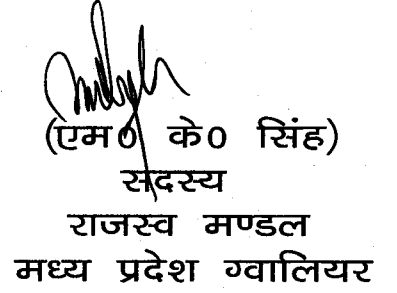 (एम0 के0 सिंह)
सदस्य
राजस्व मण्डल
मध्य प्रदेश ग्वालियर